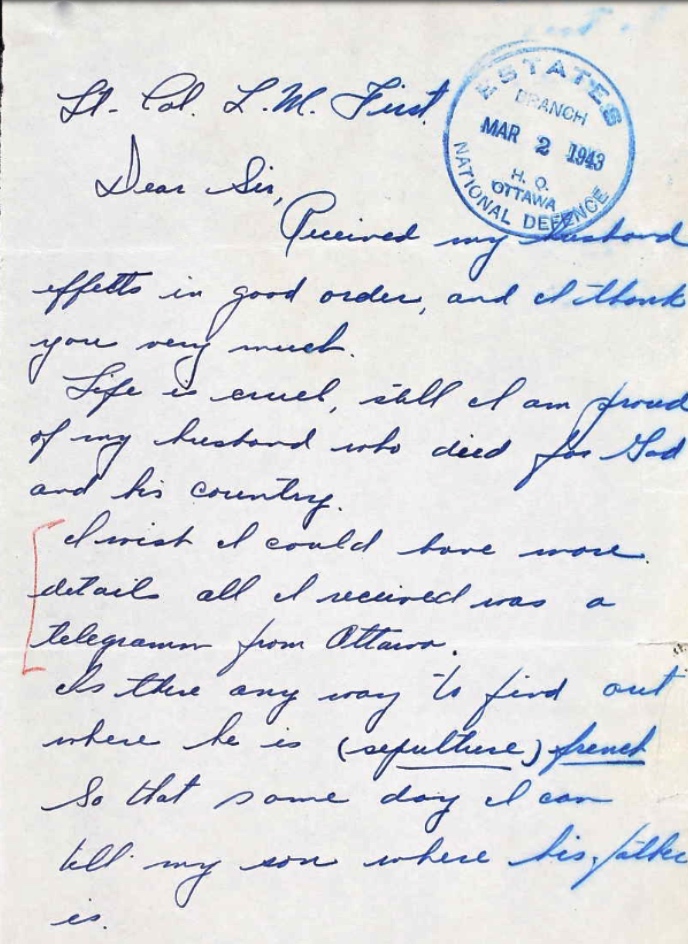 Lt. Col. L. M. First.
ESTATES
BRANCH
MAR 2 1943
H. Q.
OTTAWA
NATIONAL DEFENCE
Dear Sir,
Received my husband
effects in good order, and I thank
you very much.
Life is cruel, still I am proud
of my husband who died for God
and his country.
I wish I could have more
details all I received was a
telegramm from Ottawa.
Is there any way to find out
where he is (sepulture) french
So that some day I can
tell my son where his father
is.